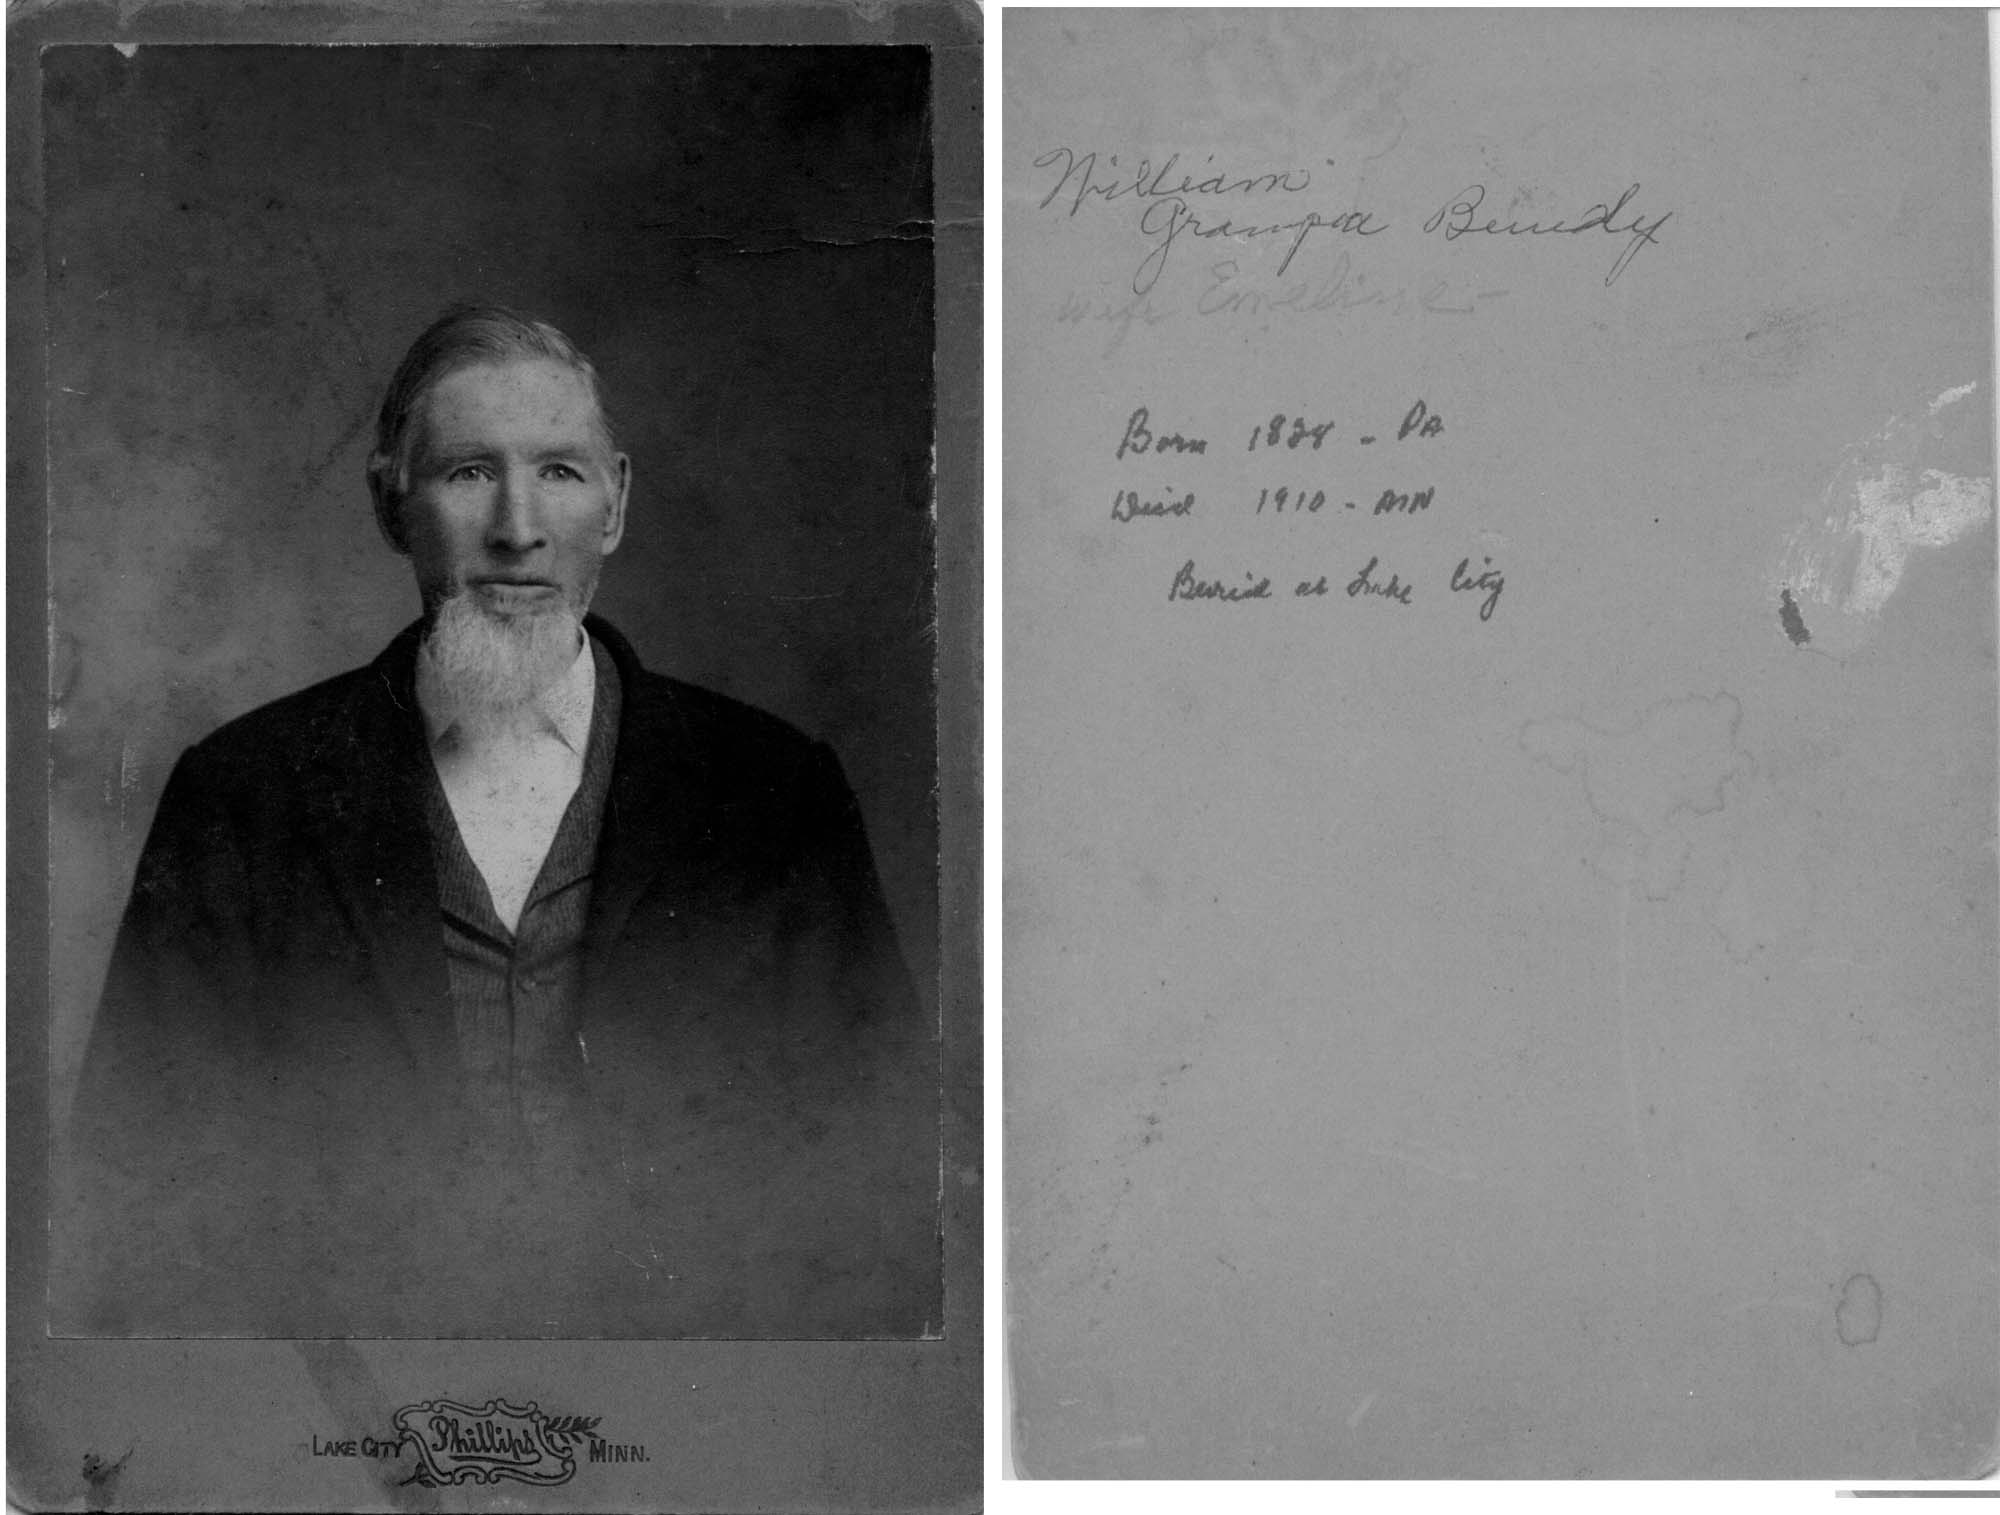 LAKE CITY Phillips MINN.
William
Grampa Benedy
wife Emeline -
Born 1828 - PA
Died 1910 - MN
Buried at Lake City